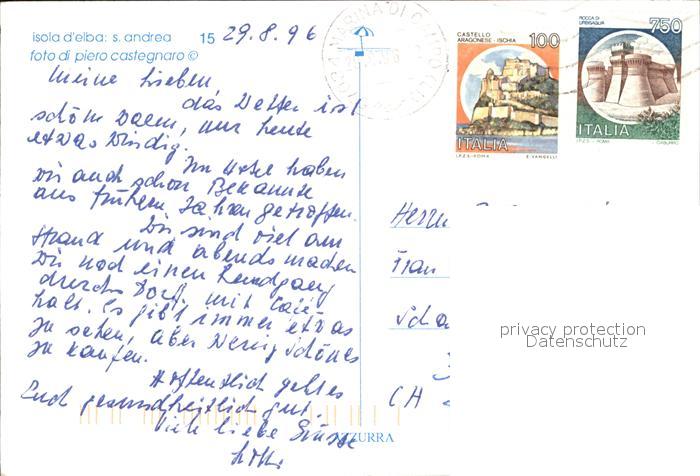 isola d'elba: s. andrea 15 29.8.96
foto di piero castegnaro ©
Meine Lieben
das Wetter ist
schön warm, nur heute
etwas windig.
Im Hotel haben
wir auch schon Bekannte
aus frühern Jahren getroffen.
Wir sind viel am
Strand und abends machen
wir noch einen Rundgang
durchs Dorf, mit
halt. Es gibt immer etwas
zu sehen, aber wenig schönes
zu kaufen.
Hoffentlich geht es
Euch gesundheitlich gut.
Viele liebe Grüsse
AZZURRA
CASTELLO
ARAGONESE - ISCHIA 100
ITALIA
I.P.Z.S. - ROMA E. VANGELLI
ROCCA DI
URBISAGLIA 750
ITALIA
I.P.Z.S. - ROMA
MARINA DI CAMPO
Herrn
Frau
CH
privacy protection
Datenschutz